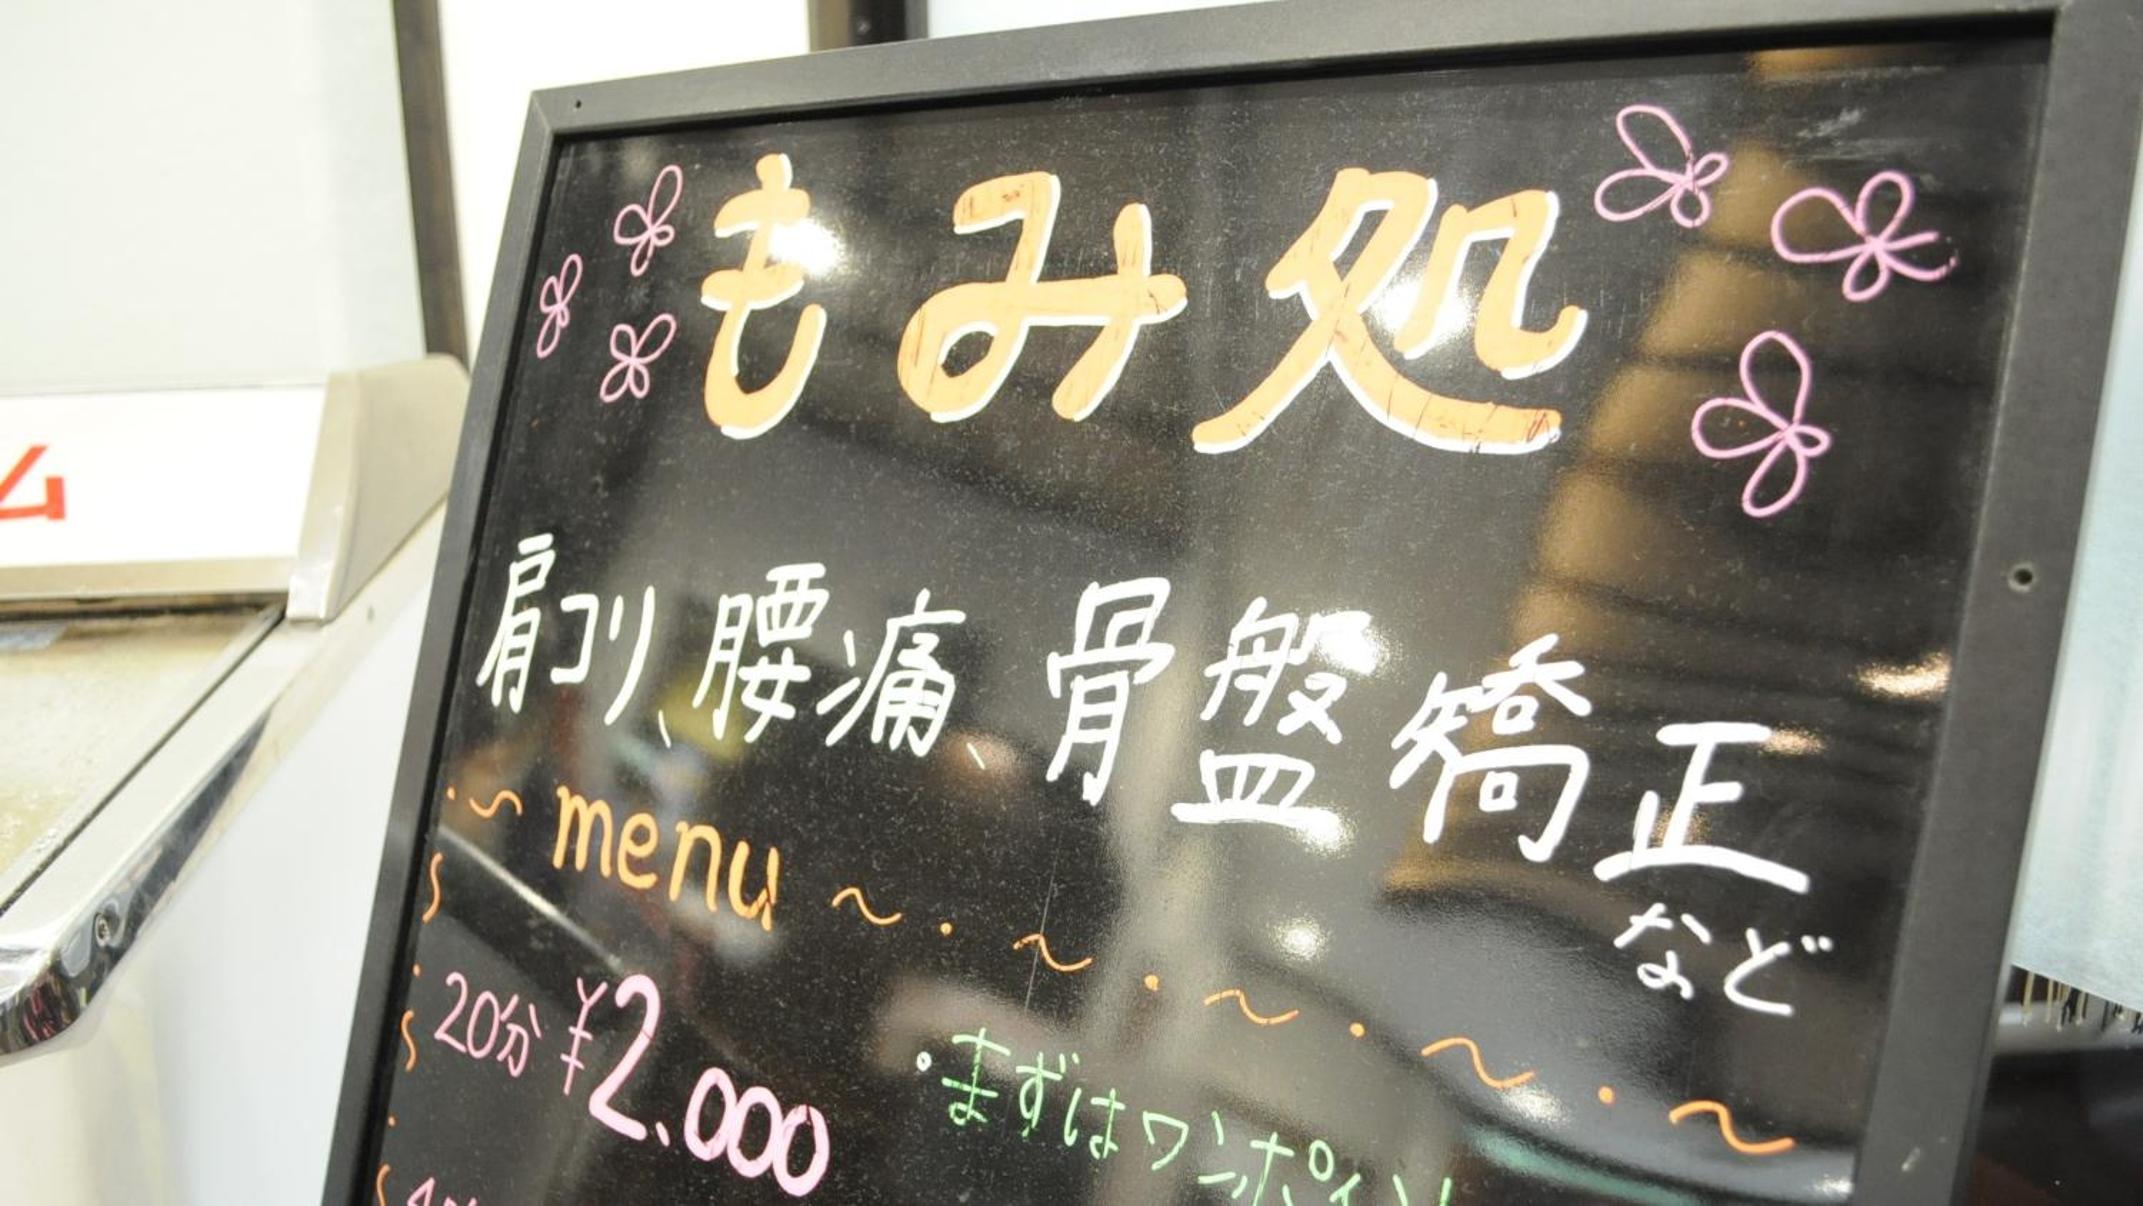 もみ処
肩コリ、腰痛、骨盤矯正
など
menu
20分 ¥2,000
・まずはワンポイン
ム